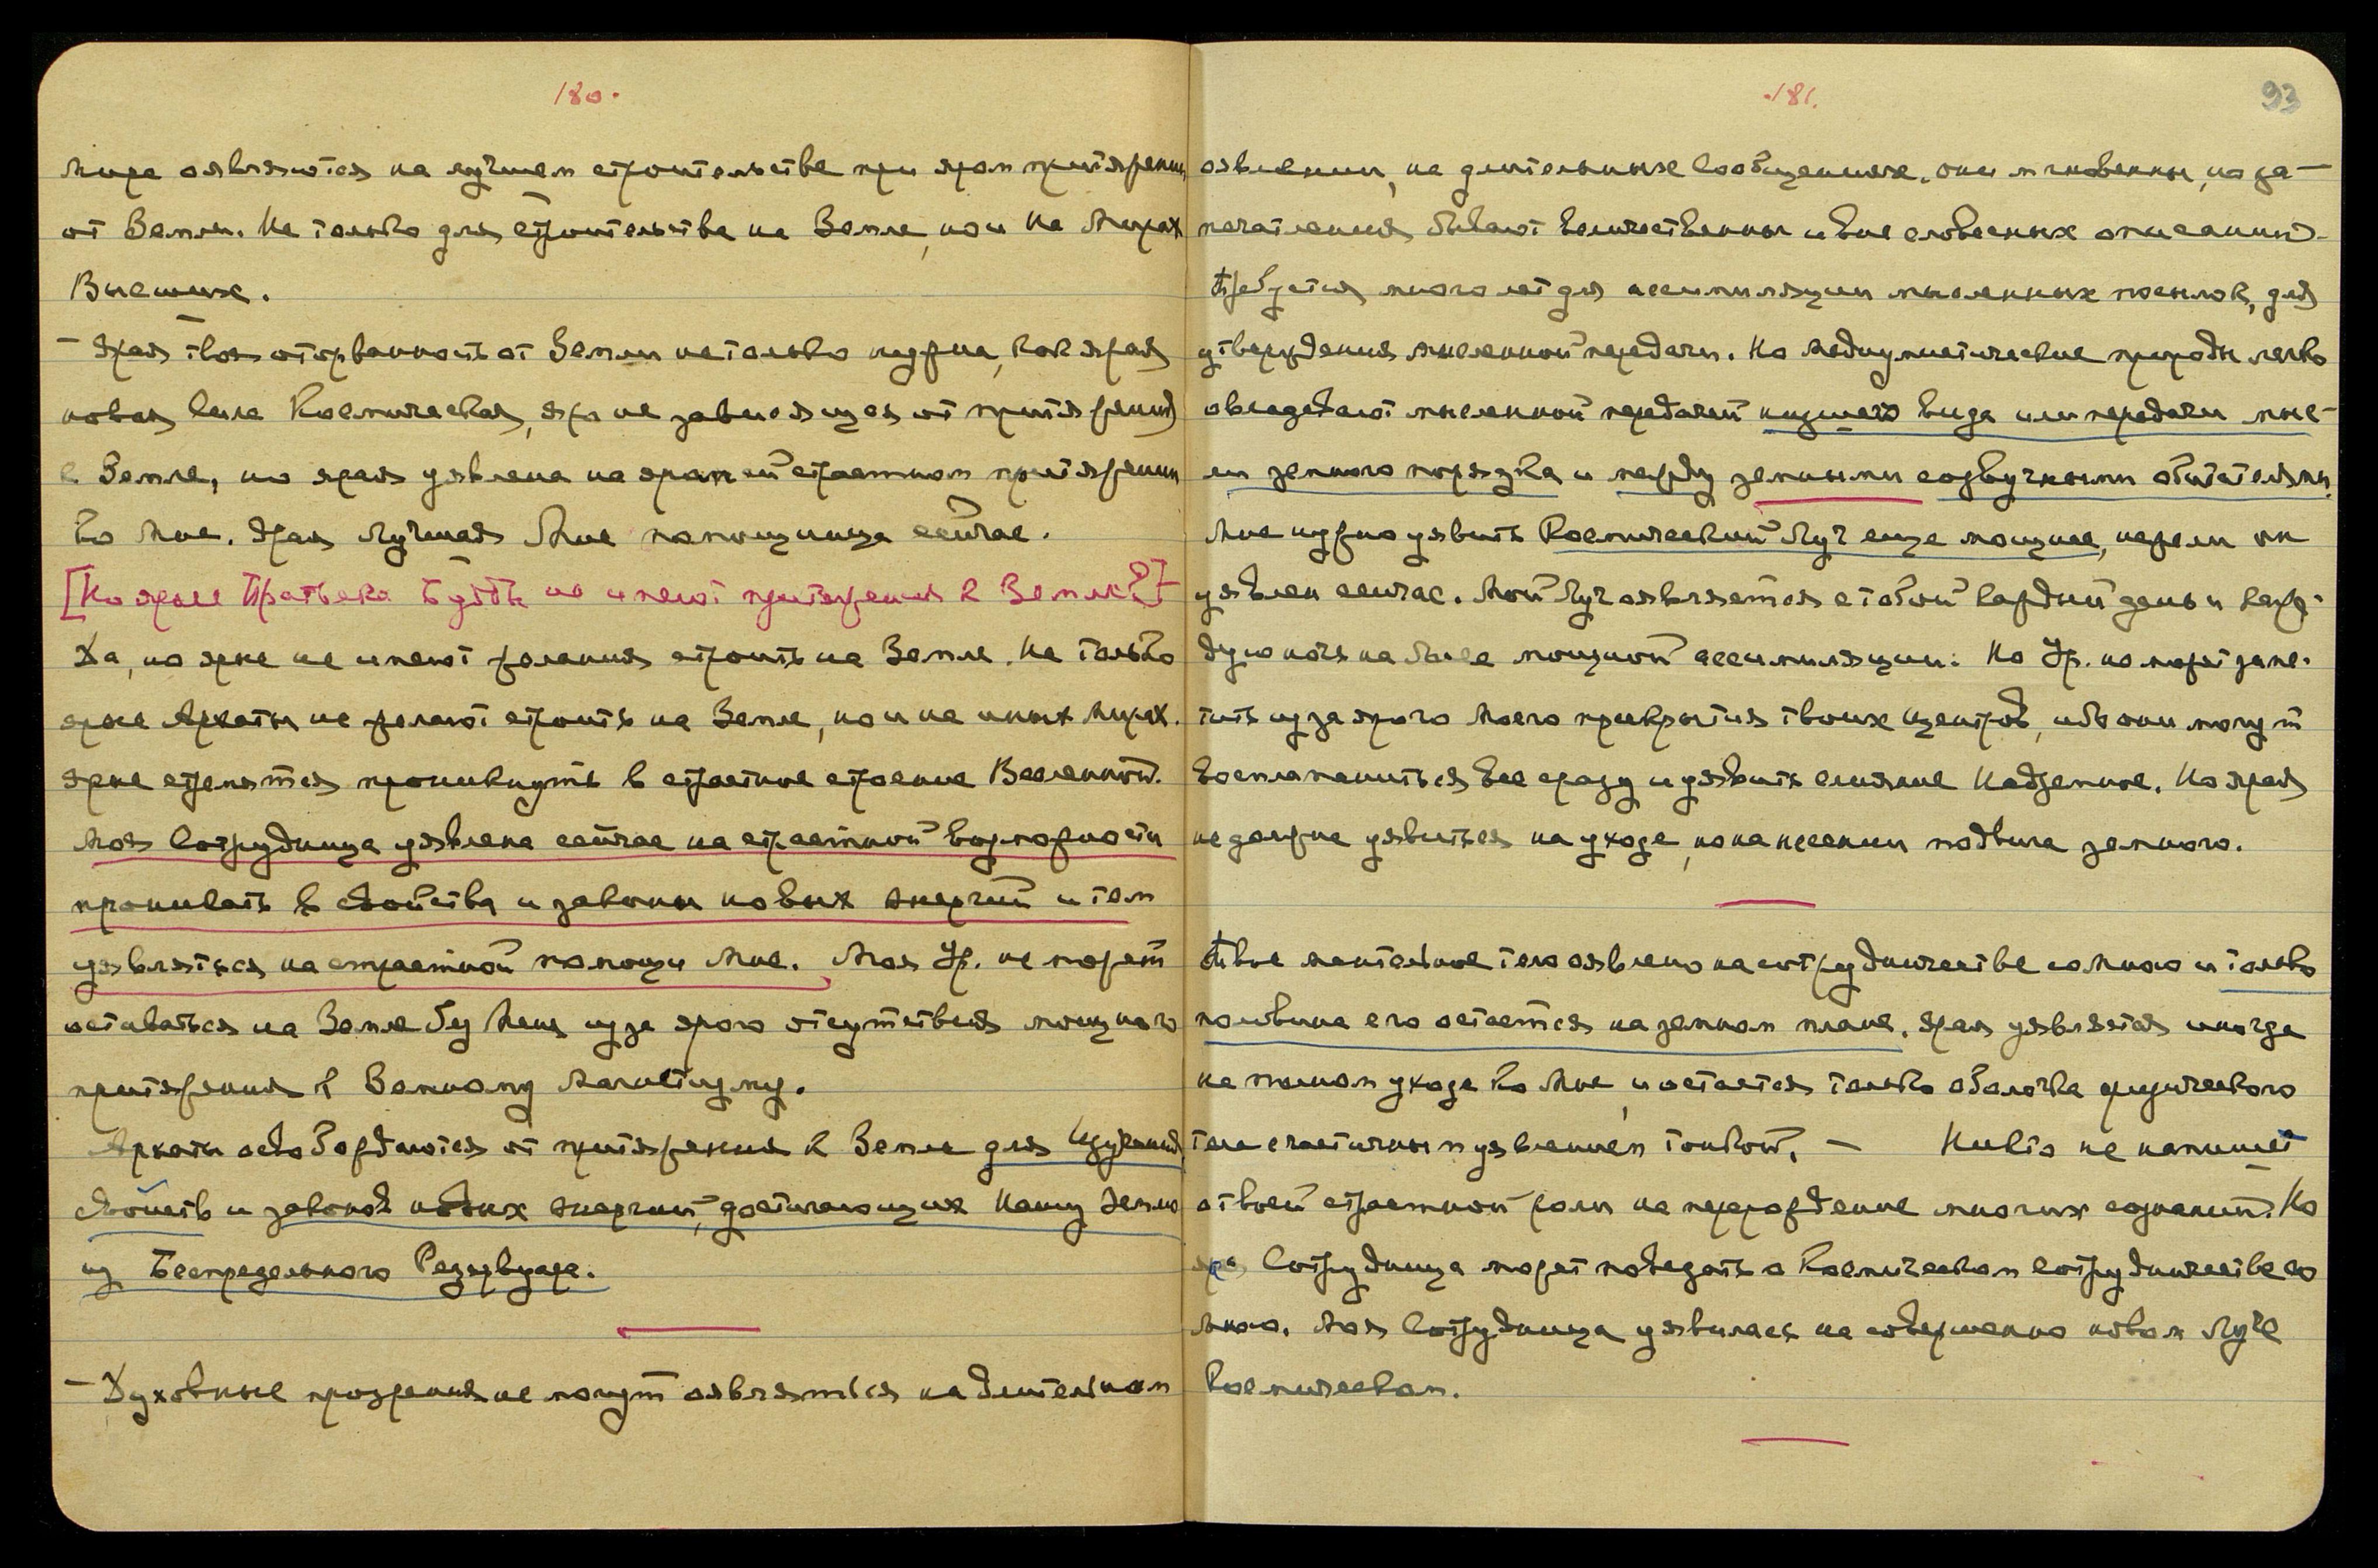 180.
Мира оявляются на лучшем строительстве при яром притяжении
от Земли. Не только для строительства на Земле, но и на Мирах
Высших.
— Ярая твоя оторванность от Земли не только нужна, как ярая
новая сила Космическая, яро не зависящая от притяжения
к Земле, но ярая уявлена на яром и страстном притяжении
ко Мне. Ярая лучшая Мне помощница сейчас.
[Но ярые Пратьека Будды не имеют притяжения к Земле?]
Да, но ярые не имеют желания строить на Земле. Не только
ярые Архаты не желают строить на Земле, но и на иных Мирах.
Ярые стремятся проникнуть в страстное строение Вселенной.
Моя Сотрудница уявлена сейчас на страстной возможности
проникать в свойства и законы новых энергий и тем
уявляться на страстной помощи Мне. Моя Ур. не может
оставаться на Земле без Меня из за ярого отсутствия мощного
притяжения к Земному Магнетизму.
Архаты освобождаются от притяжения к Земле для Изучения
свойств и законов новых энергий, достигающих нашу Землю
из Беспредельного Резервуара.
— Духовные прозрения не могут оявляться на длительном
181.
93
оявлении, на длительных сообщениях, они мгновенны, но за-
печатления бывают величественны и вне словесных описаний.
Требуется много лет для ассимиляции мысленных посылок, для
утверждения мысленной передачи. Но медиумистические природы легко
овладевают мысленной передачей низшего вида или передачи мыс-
ли земного порядка и между земными созвучными обитателями.
Мне нужно уявить Космический Луч еще мощнее, нежели он
уявлен сейчас. Мой Луч оявляется с тобой каждый день и каж-
дую ночь на более мощной ассимиляции. Но Ур. не может заме-
тить из за ярого Моего прикрытия твоих центров, ибо они могут
воспламениться все сразу и уявить слияние Надземное. Но ярая
не должна уявиться на уходе, но на несении подвига земного.
Твое ментальное тело оявлено на сотрудничестве со Мною и только
половина его остается на земном плане. Ярая уявляется иногда
на полном уходе ко Мне, и остается только оболочка физического
тела с частичным уявлением тонкой. — Никто не напишет
о твоей страстной роли на перерождение многих сознаний. Но
яра Сотрудница может поведать о Космическом сотрудничестве со
Мною. Моя Сотрудница уявилась на совершенно новом Луче
Космическом.